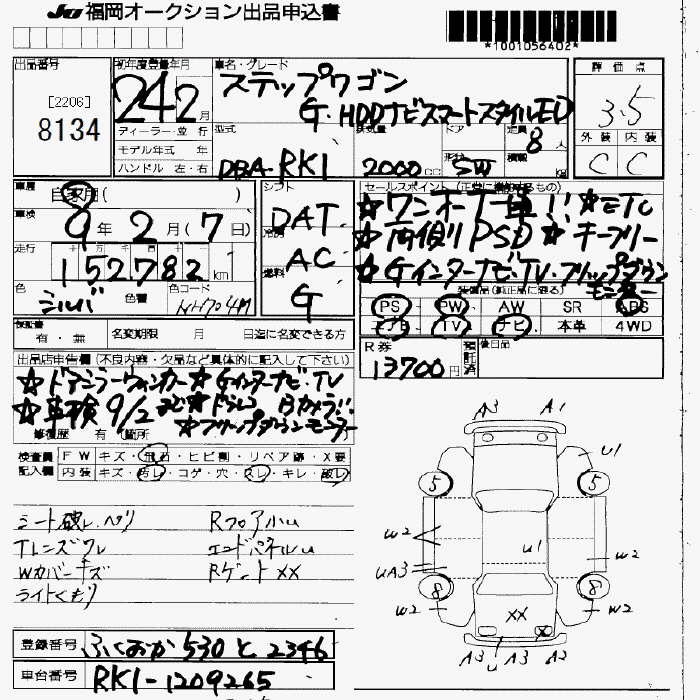 JU 福岡オークション出品申込書
*1001056402*
出品番号
[2206]
8134
初年度登録年月
24 2 月
ディーラー・並行
モデル年式 年
ハンドル 左・右
車名・グレード
ステップワゴン
G・HDDナビスマートスタイルED
型式
DBA-RK1
排気量
2000 cc
ドア
形状
SW
定員
8 人
積載
kg
評価点
3.5
外装 内装
C C
車歴
自家用( )
車検
9年 2月(7日)
走行
152782 km
色
シルバ
色替
色コード
NH704M
シフト
DAT
冷房
AC
燃料
G
セールスポイント(正常に機能するもの)
☆ワンオーナー車!! ☆ETC
☆両側PSD ☆キーフリー
☆Gインターナビ・TV・フリップダウン
モニター
装備品(純正品に限る)
PS PW AW SR ABS
エアB TV ナビ 本革 4WD
保証書
有・無
名変期限 月 日迄に名変できる方
R券
13700円
預託済
後日品
出品店申告欄(不良内容・欠品など具体的に記入して下さい)
☆ドアミラーウィンカー☆Gインターナビ・TV
☆車検9/2まで☆ドラレコ Bカメラ!!
☆フリップダウンモニター
修復歴 有(箇所
検査員
記入欄
FW キズ・飛石・ヒビ割・リペア跡・X要
内装 キズ・汚レ・コゲ・穴・スレ・キレ・破レ
シート破レ・ヘリ
Tレンズワレ
Wカバーキズ
ライトくもり
Rフロア小U
エンドパネルU
Rゲート XX
A3 A1
U1
5 5
W2
U1
W2
UA3
8 8
W2 W2
XX
X
A3 U A3 A2
登録番号 ふくおか 530 と 2346
車台番号 RK1-1209265